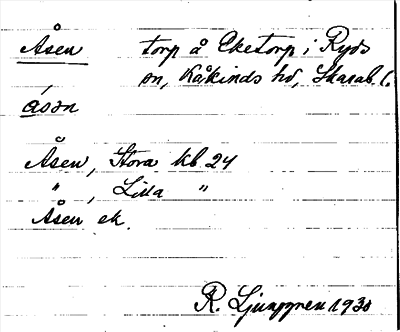 Åsen torp å Eketorp i Ryds
sn, Kåkinds hd, Skarab. l.
åsən
Åsen, Stora kb 24
" , Lilla "
Åsen ek.
R. Ljunggren 1930